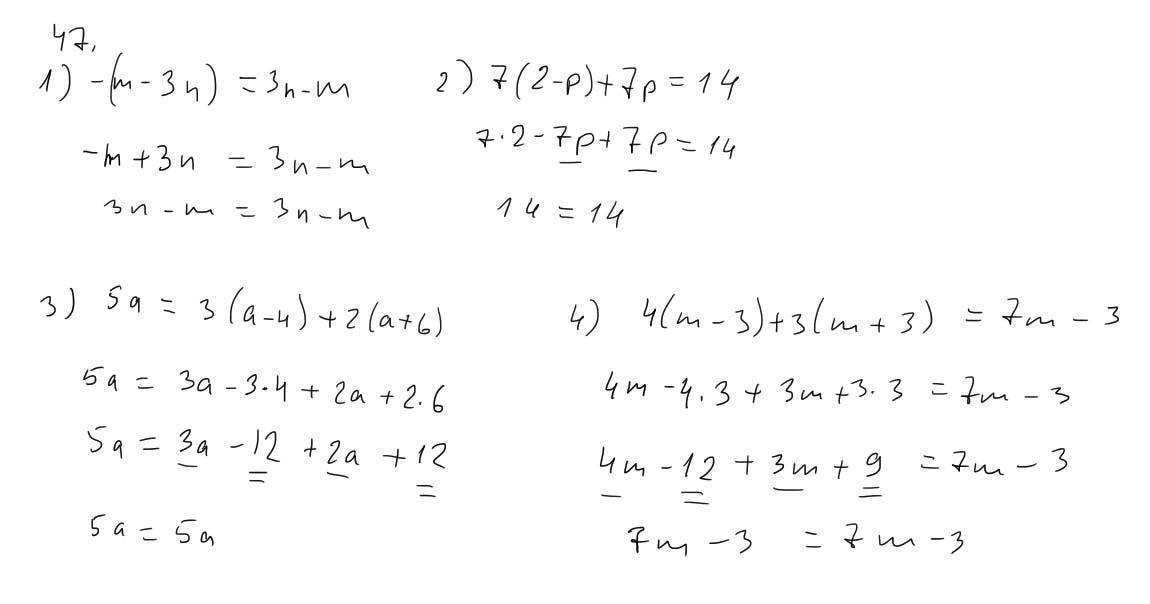 47.
1) -(m - 3n) = 3n - m
-m + 3n = 3n - m
3n - m = 3n - m
2) 7(2-p)+7p = 14
7·2 - 7p + 7p = 14
14 = 14
3) 5a = 3(a-4)+2(a+6)
5a = 3a - 3·4 + 2a + 2·6
5a = 3a - 12 + 2a + 12
5a = 5a
4) 4(m-3)+3(m+3) = 7m - 3
4m - 4·3 + 3m + 3·3 = 7m - 3
4m - 12 + 3m + 9 = 7m - 3
7m - 3 = 7m - 3